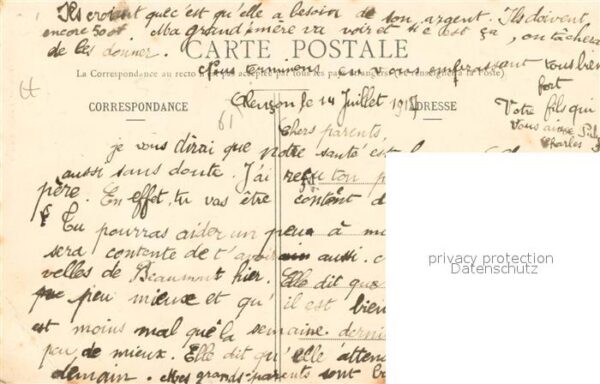 Ils croient que c'est qu'elle a besoin de son argent. Ils doivent
encore 50ot. Ma grand'mère va voir et si c'est ça, on tâchera
de les donner.
CARTE POSTALE
La Correspondance au recto n'est pas acceptée par tous les pays étrangers (Se renseigner à la Poste)
Nous terminons en vous embrassant tous bien
fort
CORRESPONDANCE
ADRESSE
Alençon le 14 Juillet 1917
61
Votre fils qui
vous aime
Charles
Chers parents,
je vous dirai que notre santé est
aussi sans doute. J'ai reçu ton
père. En effet, tu vas être content
Tu pourras aider un peu à
sera contente de t'avoir aussi.
velles de Beaumont hier. Elle dit que
peu mieux et qu'il est bien
est moins mal que la semaine
peu de mieux. Elle dit qu'elle
demain. Mes grands-parents sont
privacy protection
Datenschutz